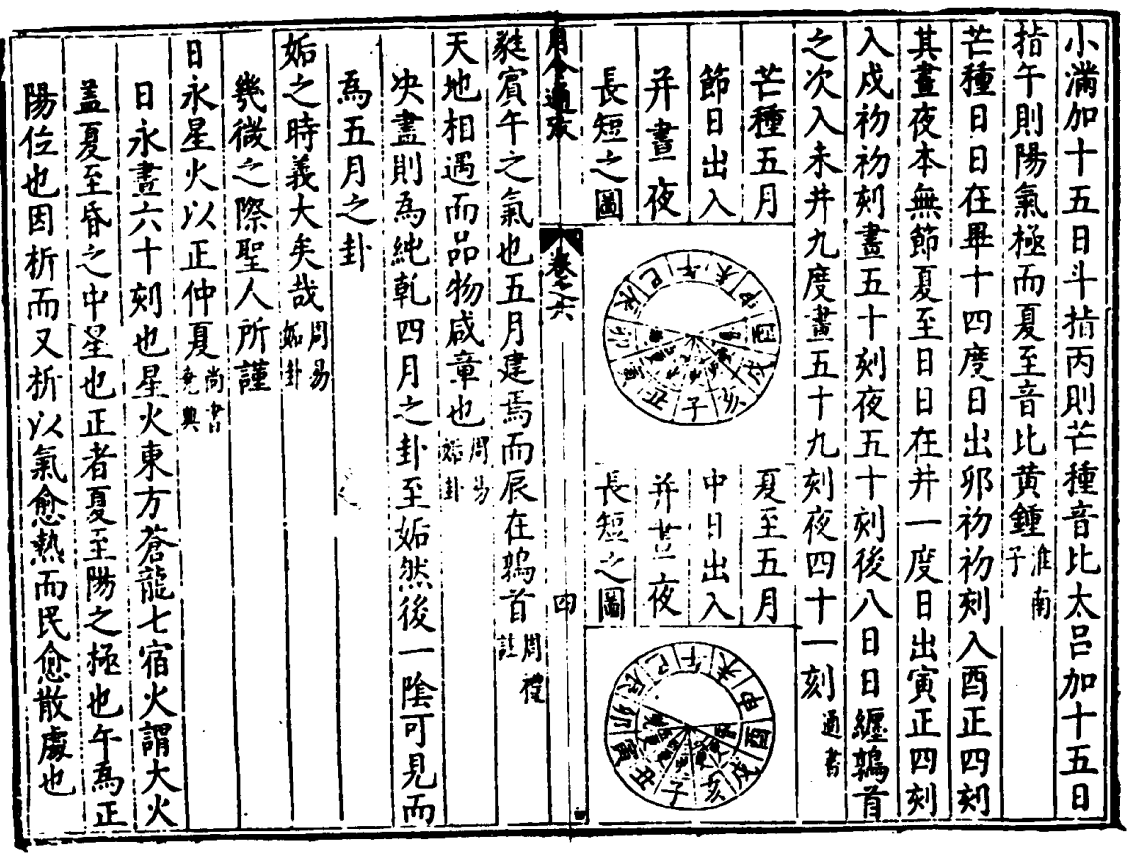 小滿加十五日斗指丙則芒種音比太呂加十五日
指午則陽氣極而夏至音比黃鍾淮南子
芒種日日在畢十四度日出卯初初刻入酉正四刻
其晝夜本無節夏至日日在井一度日出寅正四刻
入戍初初刻晝五十刻夜五十刻後八日日纏鶉首
之次入未井九度晝五十九刻夜四十一刻通書
芒種五月
節日出入
并晝夜
長短之圖
子
丑
寅
卯
辰
巳
午
未
申
酉
戌
亥
夏至五月
中日出入
并晝夜
長短之圖
子
丑
寅
卯
辰
巳
午
未
申
酉
戌
亥
月令通攷
卷之六
四
蕤賓午之氣也五月建焉而辰在鶉首周禮註
天地相遇而品物咸章也周易姤卦
决盡則為純乾四月之卦至姤然後一陰可見而
為五月之卦
姤之時義大矣哉周易姤卦
幾微之際聖人所謹
日永星火以正仲夏尚書堯典
日永晝六十刻也星火東方蒼龍七宿火謂大火
蓋夏至昏之中星也正者夏至陽之極也午為正
陽位也因析而又析以氣愈熱而民愈散處也